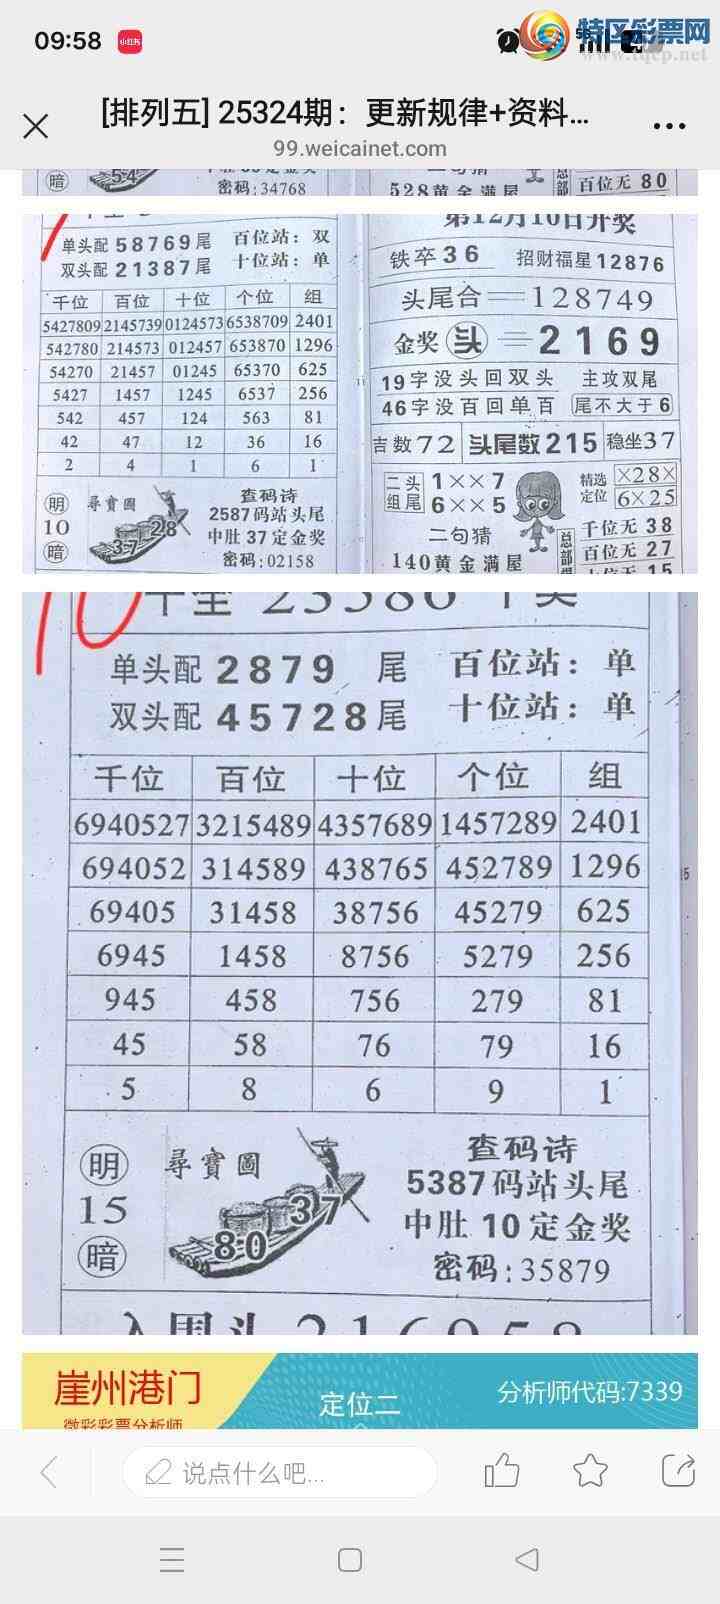 09:58
小红书
特区彩票网
www.tqcp.net
[排列五] 25324期：更新规律+资料...
99.weicainet.com
暗
54
密码:34768
二句猜
528黄金满屋
总部
百位无 80
单头配 58769 尾 百位站: 双
双头配 21387 尾 十位站: 单
千位 百位 十位 个位 组
5427809 2145739 0124573 6538709 2401
542780 214573 012457 653870 1296
54270 21457 01245 65370 625
5427 1457 1245 6537 256
542 457 124 563 81
42 47 12 36 16
2 4 1 6 1
明
10
暗
尋寶圖
28
37
查码诗
2587码站头尾
中肚 37 定金奖
密码:02158
第12月10日开奖
铁卒 36 招财福星12876
头尾合＝128749
金奖 头 ＝2169
19字没头回双头 主攻双尾
46字没百回单百 尾不大于6
吉数72 头尾数215 稳坐37
二头组尾
1××7
6××5
精选定位
×28×
6×25
二句猜
140黄金满屋
总部
千位无 38
百位无 27
十位无 15
千坐 23586 十奖
单头配 2879 尾 百位站: 单
双头配 45728 尾 十位站: 单
千位 百位 十位 个位 组
6940527 3215489 4357689 1457289 2401
694052 314589 438765 452789 1296
69405 31458 38756 45279 625
6945 1458 8756 5279 256
945 458 756 279 81
45 58 76 79 16
5 8 6 9 1
明
15
暗
尋寶圖
37
80
查码诗
5387码站头尾
中肚 10 定金奖
密码:35879
入围头 216958
崖州港门
微彩彩票分析师
定位二
分析师代码:7339
说点什么吧...